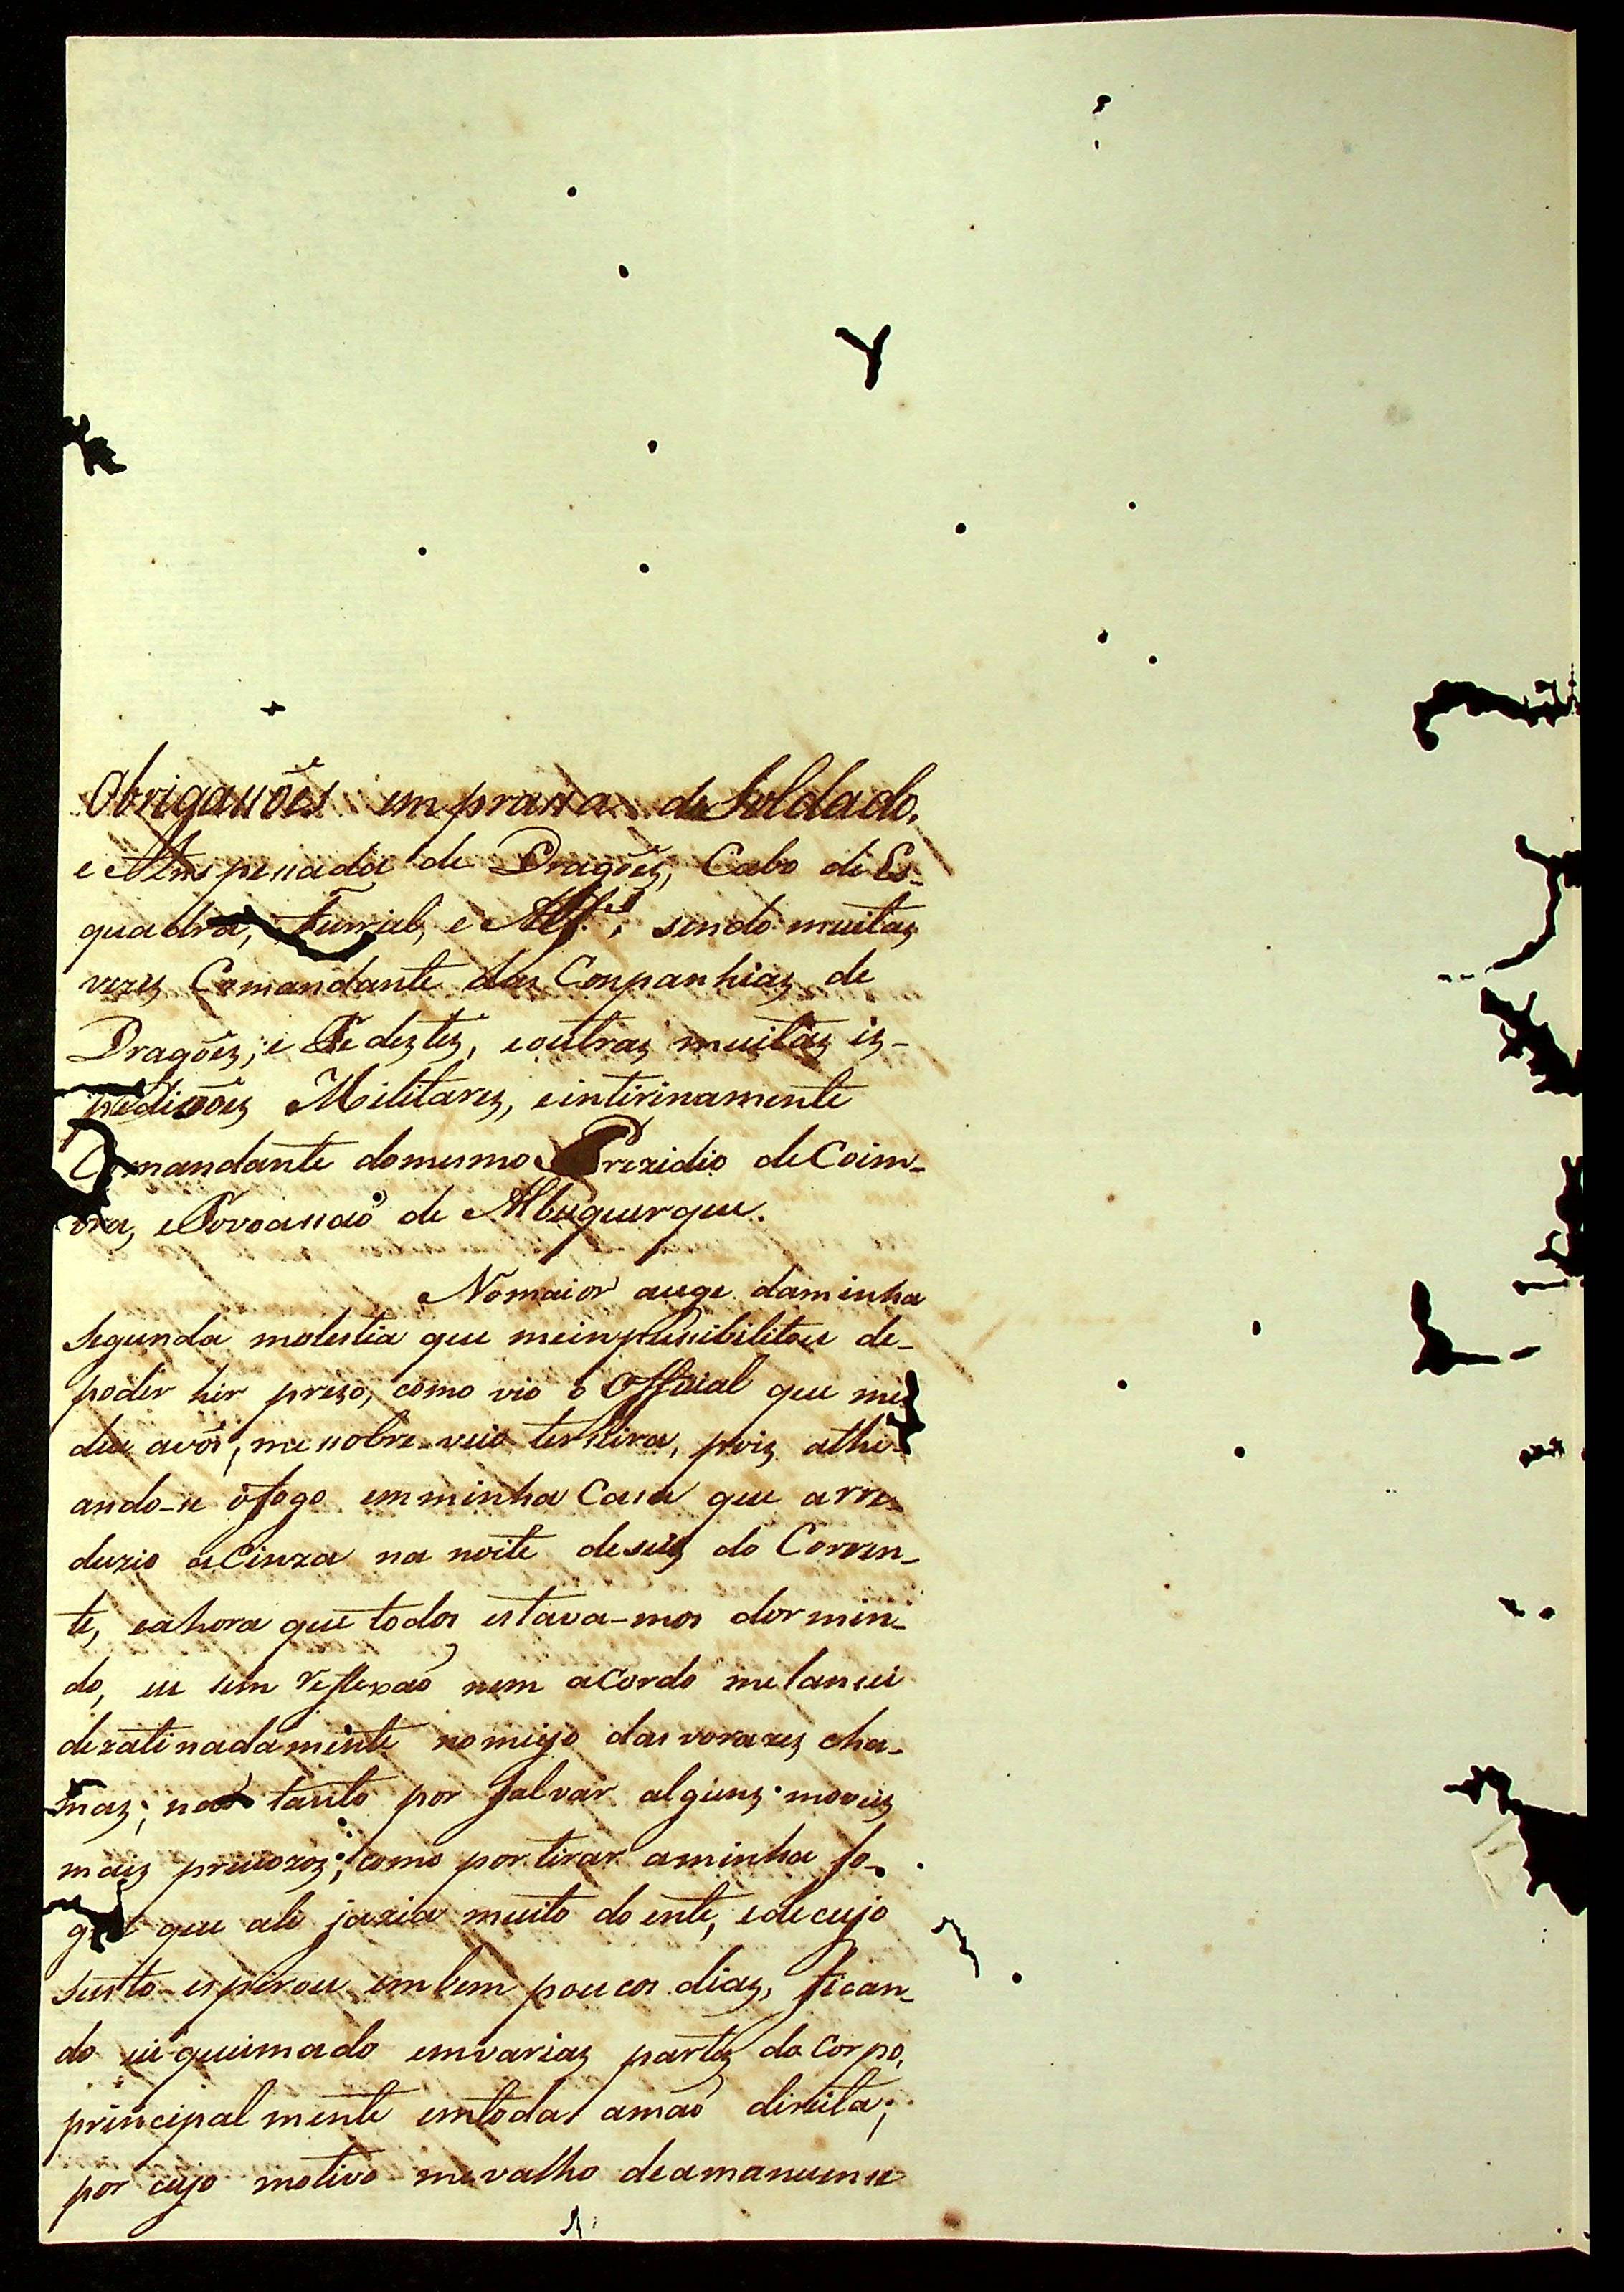 Obrigassoẽs em prassa de Soldado,
e Anspessada de Dragoẽs, Cabo de Es-
quadra, Furriel, e Alf.es, sendo muitas
vezes Comandante das Conpanhias de
Dragoẽs, e Pedestes, e outras muitas is-
pediçoẽs Militares, e intirinamente
Comandante do mesmo Prezidio de Coim-
bra, e Povoassaõ de Albuquerque.
No maior auge da minha
segunda molestia que me inpussibilitou de-
poder hir prezo, como vio o Official que me
deu a vós, me sobre-veio terseira, pois athe-
ando-se o fogo em minha Casa que a rre-
duzio a Cinza na noite de seis do Corren-
te, e a hora que todos estava-mos dormin-
do, eu sem reflexaõ nem acordo me lansei
dezatinadamente no meyo das vorazes cha-
mas; naõ tanto por salvar alguns moveis
mais preciozos; como por tirar a minha so-
gra que ali jazia muito doente, e de cujo
susto espirou em bem poucos dias, fican-
do eu queimado em varias partes do Corpo,
principalmente em toda a maõ direita;
por cujo motivo me valho de amanuense